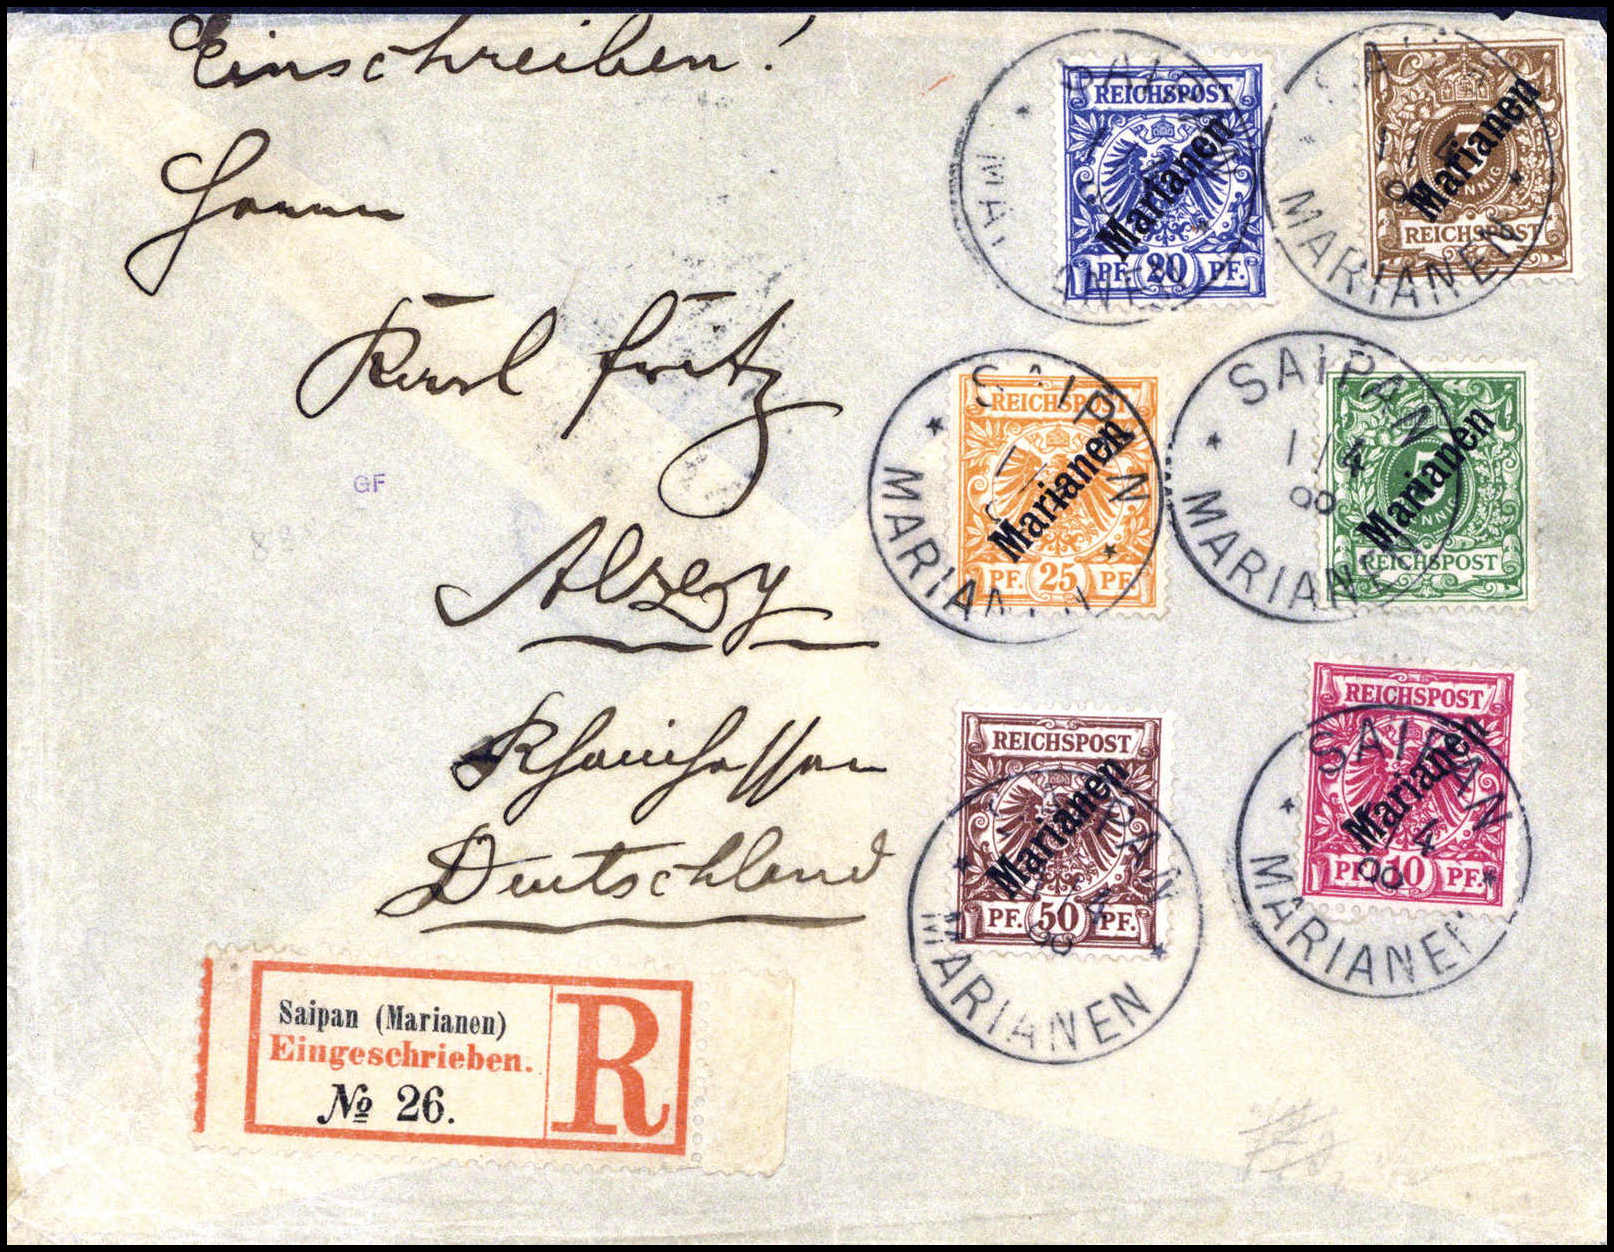 Einschreiben!
Herrn
Karl Fritz
Alzey
Rheinhessen
Deutschland
GF
REICHSPOST
Marianen
PF. 20 PF.
Marianen
PFENNIG
REICHSPOST
MARIANEN
REICHSPOST
Marianen
PF. 25 PF.
SAIPAN
MARIANEN
SAIPAN
1/4
Marianen
5
REICHSPOST
MARIANEN
REICHSPOST
Marianen
PF. 50 PF.
MARIANEN
REICHSPOST
Marianen
PF. 10 PF.
SAIPAN
4
MARIANEN
Saipan (Marianen)
Eingeschrieben.
№ 26.
R